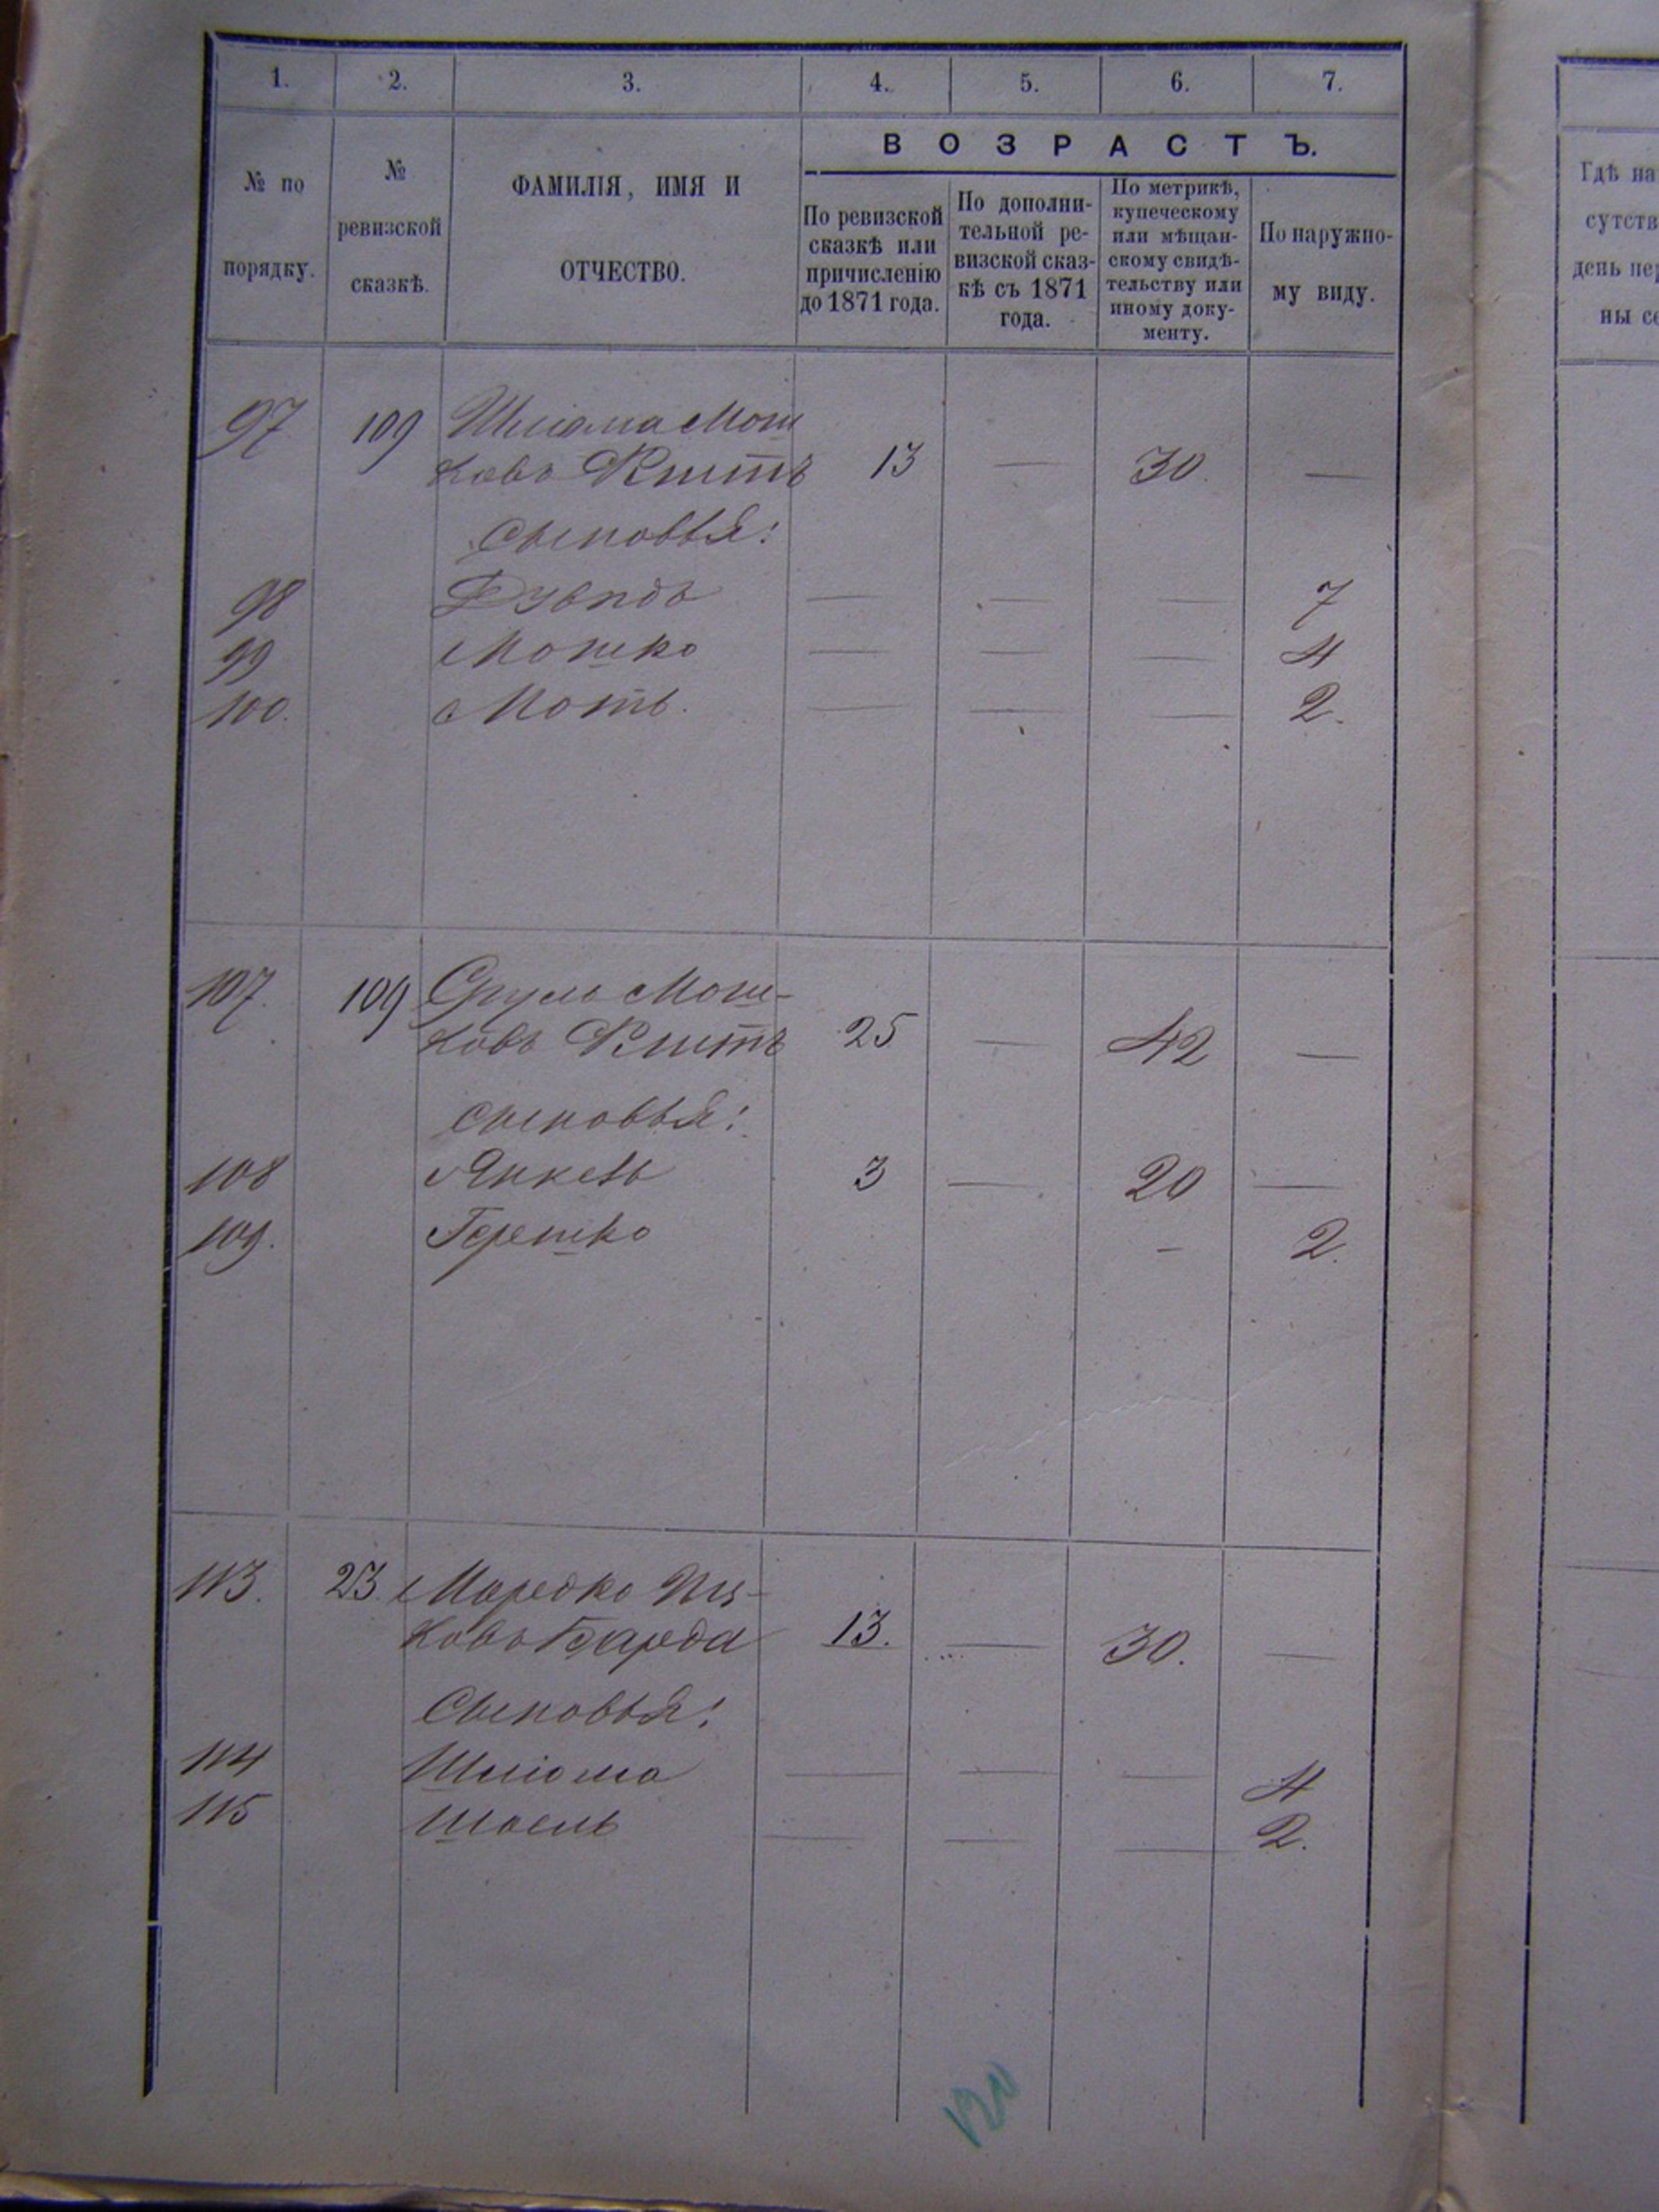 1. 2. 3. 4. 5. 6. 7.
№ по порядку.
№ ревизской сказкѣ.
ФАМИЛІЯ, ИМЯ И ОТЧЕСТВО.
ВОЗРАСТЪ.
По ревизской сказкѣ или причисленію до 1871 года.
По дополни-тельной ре-визской сказ-кѣ съ 1871 года.
По метрикѣ, купеческому или мѣщан-скому свидѣ-тельству или иному доку-менту.
По наружно-му виду.
Гдѣ на
сутств
день пер
ны се
97 109 Шліома Мош
ковъ 13 — 30. —
Сыновья:
98 — — — 7
99 Мошко — — — 4
100. Моть. — — — 2.
107. 109 Сруль Мош-
ковъ 25 — 42 —
Сыновья:
108 Янкель 3 — 20 —
109. Гершко — 2.
113. 23. Мордко Иц-
ковъ 13. — 30. —
Сыновья:
114 Шліома — — — 4
115 — — — 2.
120